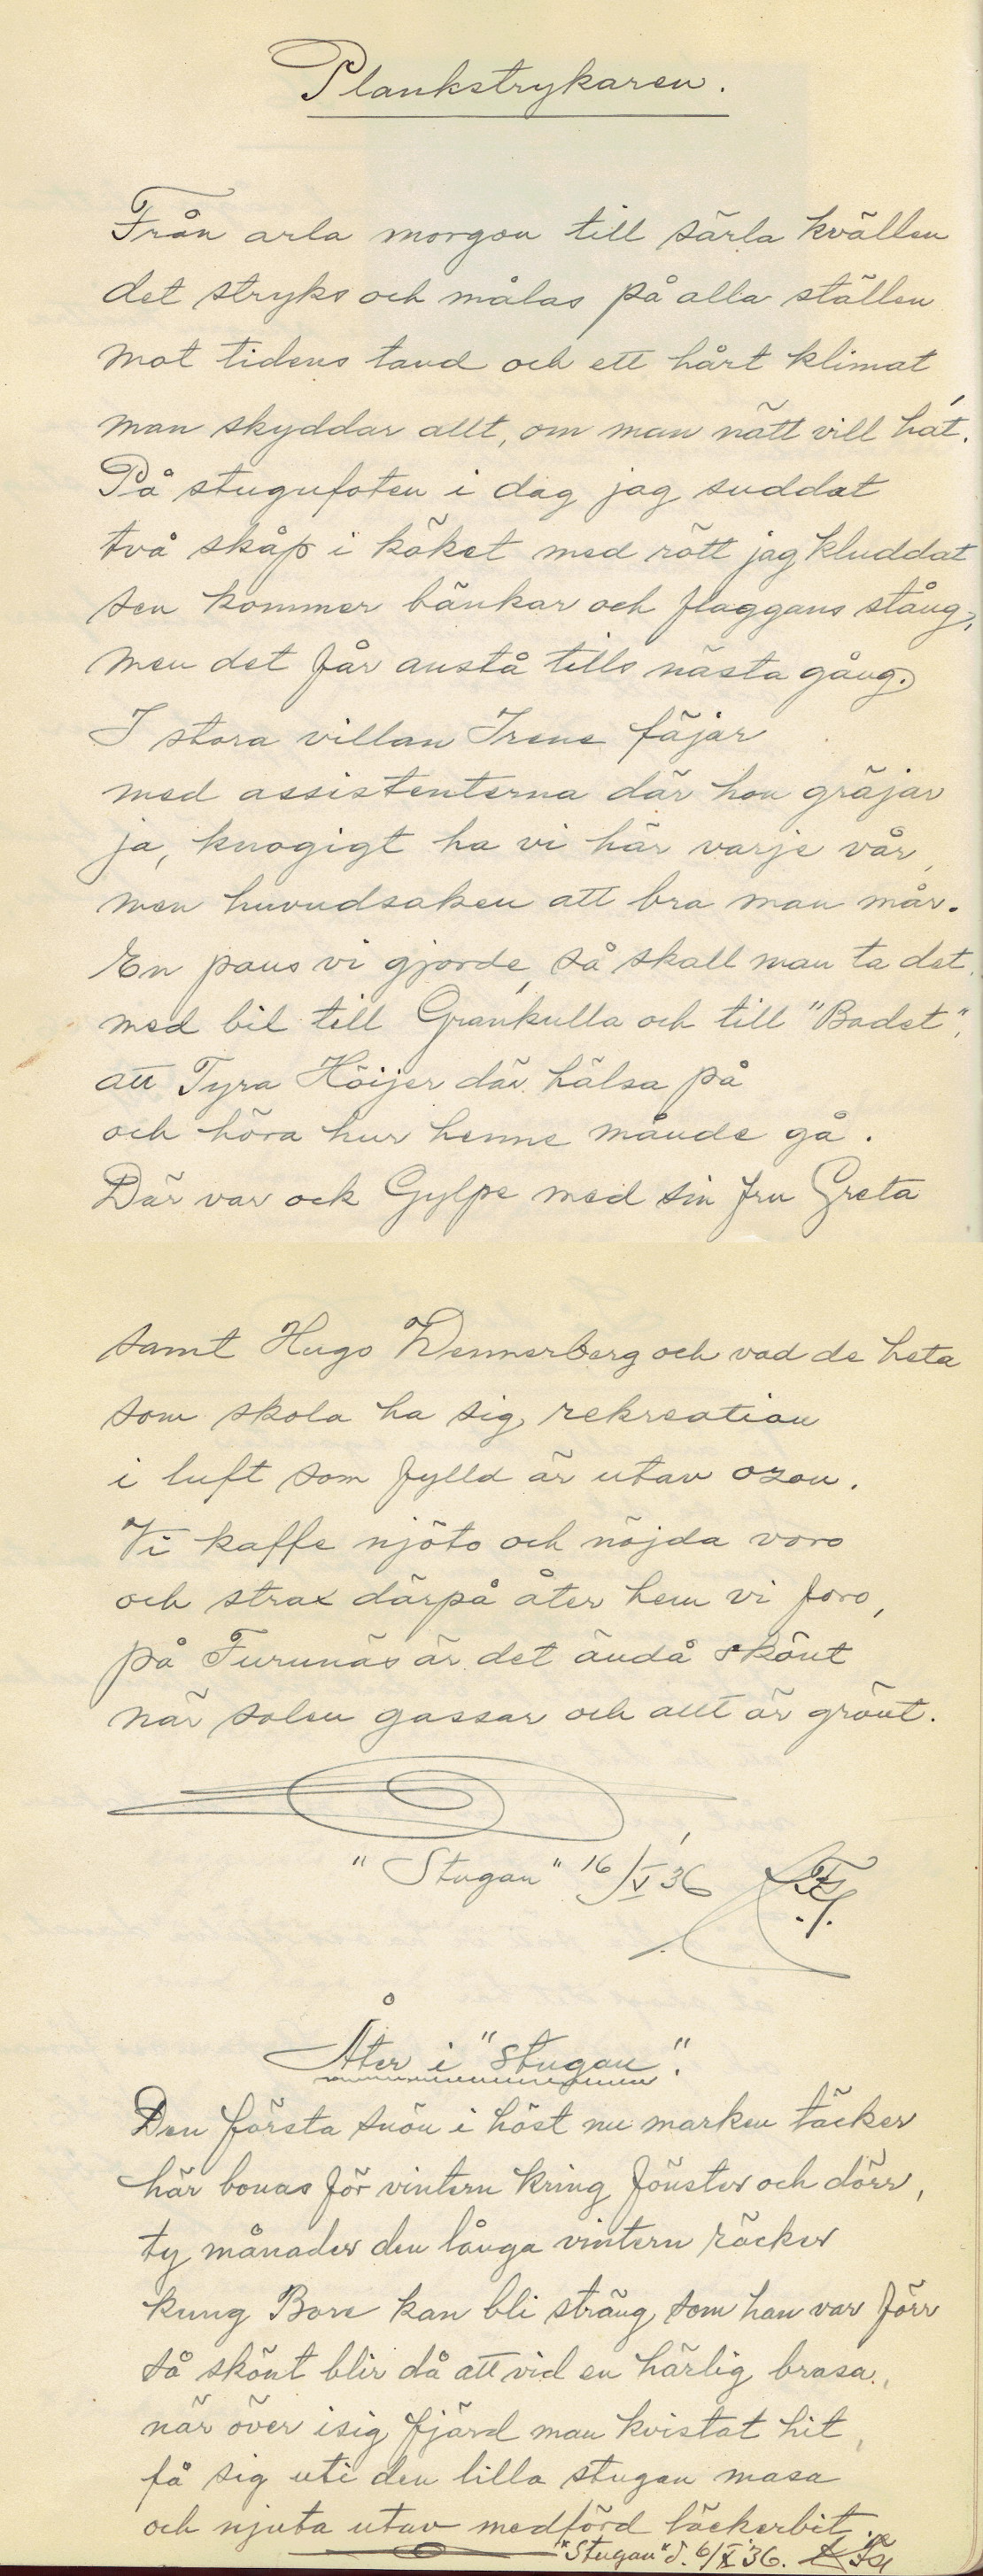 Plankstrykaren.
Från arla morgon till särla kvällen
det stryks och målas på alla ställen
mot tidens tand och ett hårt klimat
man skyddar allt, om man nätt vill ha't.
På stugufoten i dag jag suddat
två skåp i köket med rött jag kluddat
sen kommer bänkar och flaggans stång,
men det får anstå tills nästa gång.
I stora villan Irene fäjar
med assistenterna där hon gräjar
ja, knogigt ha vi här varje vår,
men huvudsaken att bra man mår.
En paus vi gjorde, så skall man ta det,
med bil till Grankulla och till "Badet",
att Tyra Höijer där hälsa på
och höra hur henne månde gå.
Där var ock Gylpe med sin fru Greta
samt Hugo Wennerberg och vad de heta
som skola ha sig rekreation
i luft som fylld är utav ozon.
Vi kaffe njöto och nöjda voro
och strax därpå åter hem vi foro,
på Furunäs är det ändå skönt
när solen gassar och allt är grönt.
"Stugan" 16/V 36
Åter i "Stugan".
Den första snön i höst nu marken täcker
här bonas för vintern kring fönster och dörr,
ty månader den långa vintern räcker
kung Bore kan bli sträng som han var förr
så skönt blir då att vid en härlig brasa,
när över isig fjärd man kvistat hit,
få sig uti den lilla stugan masa
och njuta utav medförd läckerbit.
"Stugan" d. 6/X 36.